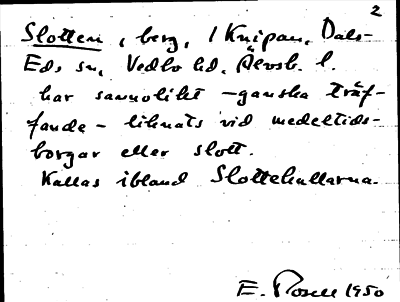 2
Slotten, berg, i Knipan, Dals-
Eds sn, Vedbo hd, Älvsb. l.
har sannolikt – ganska träf-
fande – liknats vid medeltids-
borgar eller slott.
Kallas ibland Slottehallarna.
E. Rosell 1950